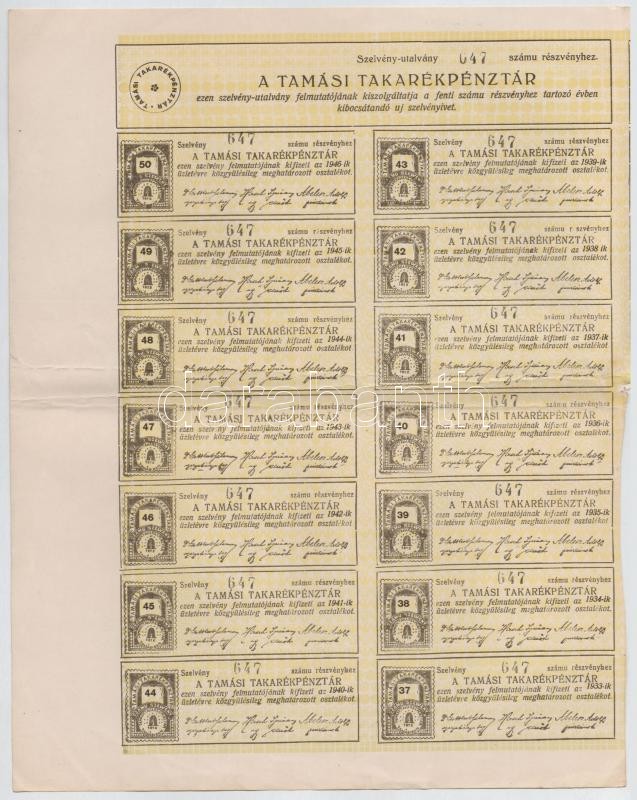 Szelvény-utalvány 647 számu részvényhez.
A TAMÁSI TAKARÉKPÉNZTÁR
ezen szelvény-utalvány felmutatójának kiszolgáltatja a fenti számu részvényhez tartozó évben
kibocsátandó uj szelvényívet.
TAMÁSI TAKARÉKPÉNZTÁR
50
Szelvény 647 számu részvényhez
A TAMÁSI TAKARÉKPÉNZTÁR
ezen szelvény felmutatójának kifizeti az 1946-ik
üzletévre közgyülésileg meghatározott osztalékot.
43
Szelvény 647 számu részvényhez
A TAMÁSI TAKARÉKPÉNZTÁR
ezen szelvény felmutatójának kifizeti az 1939-ik
üzletévre közgyülésileg meghatározott osztalékot.
49
Szelvény 647 számu részvényhez
A TAMÁSI TAKARÉKPÉNZTÁR
ezen szelvény felmutatójának kifizeti az 1945-ik
üzletévre közgyülésileg meghatározott osztalékot.
42
Szelvény 647 számu r szvényhez
A TAMÁSI TAKARÉKPÉNZTÁR
ezen szelvény felmutatójának kifizeti az 1938 ik
üzletévre közgyülésileg meghatározott osztalékot.
48
Szelvény 647 számu részvényhez
A TAMÁSI TAKARÉKPÉNZTÁR
ezen szelvény felmutatójának kifizeti az 1944-ik
üzletévre közgyülésileg meghatározott osztalékot.
41
Szelvény 647 számu részvényhez
A TAMÁSI TAKARÉKPÉNZTÁR
ezen szelvény felmutatójának kifizeti az 1937-ik
üzletévre közgyülésileg meghatározott osztalékot.
47
Szelvény 647 számu részvényhez
A TAMÁSI TAKARÉKPÉNZTÁR
ezen szelvény felmutatójának kifizeti az 1943-ik
üzletévre közgyülésileg meghatározott osztalékot.
40
Szelvény 647 számu részvényhez
A TAMÁSI TAKARÉKPÉNZTÁR
ezen szelvény felmutatójának kifizeti az 1936-ik
üzletévre közgyülésileg meghatározott osztalékot.
46
Szelvény 647 számu részvényhez
A TAMÁSI TAKARÉKPÉNZTÁR
ezen szelvény felmutatójának kifizeti az 1942-ik
üzletévre közgyülésileg meghatározott osztalékot.
39
Szelvény 647 számu részvényhez
A TAMÁSI TAKARÉKPÉNZTÁR
ezen szelvény felmutatójának kifizeti az 1935-ik
üzletévre közgyülésileg meghatározott osztalékot.
45
Szelvény 647 számu részvényhez
A TAMÁSI TAKARÉKPÉNZTÁR
ezen szelvény felmutatójának kifizeti az 1941-ik
üzletévre közgyülésileg meghatározott osztalékot.
38
Szelvény 647 számu részvényhez
A TAMÁSI TAKARÉKPÉNZTÁR
ezen szelvény felmutatójának kifizeti az 1934-ik
üzletévre közgyülésileg meghatározott osztalékot.
44
Szelvény 647 számu részvényhez
A TAMÁSI TAKARÉKPÉNZTÁR
ezen szelvény felmutatójának kifizeti az 1940-ik
üzletévre közgyülésileg meghatározott osztalékot.
37
Szelvény 647 számu részvényhez
A TAMÁSI TAKARÉKPÉNZTÁR
ezen szelvény felmutatójának kifizeti az 1933-ik
üzletévre közgyülésileg meghatározott osztalékot.
darabanth